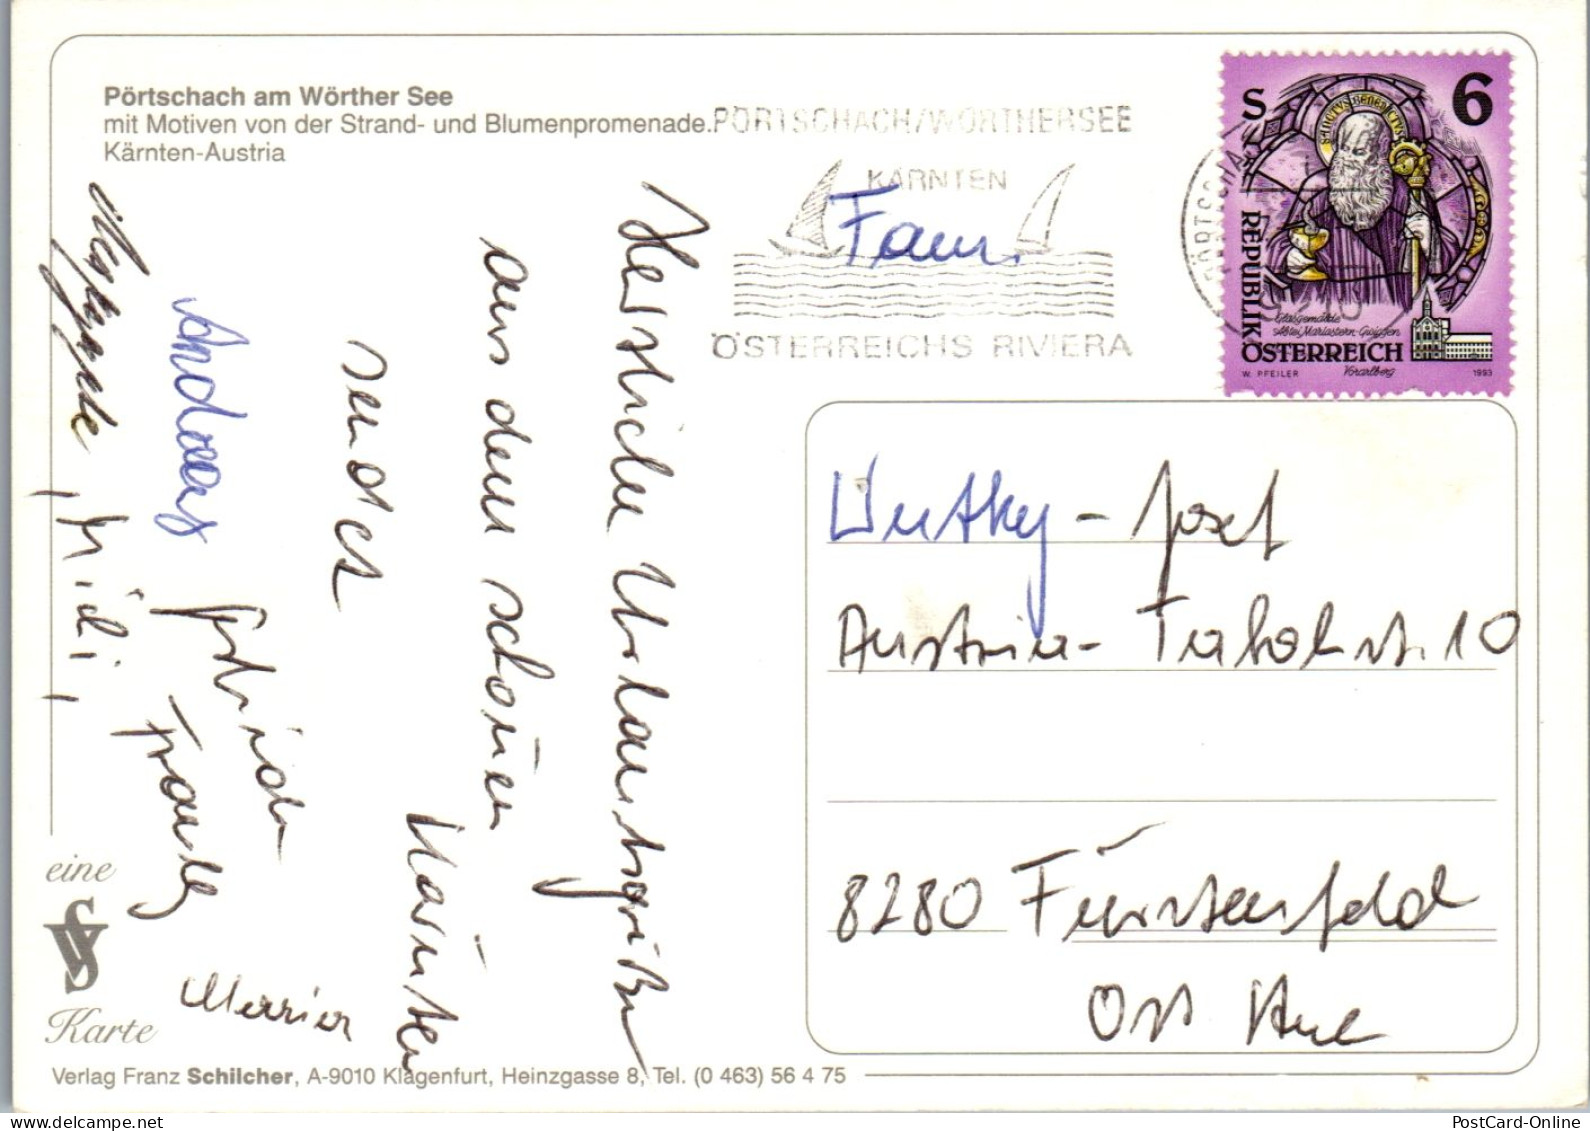 Pörtschach am Wörther See
mit Motiven von der Strand- und Blumenpromenade.
Kärnten-Austria
PÖRTSCHACH/WÖRTHERSEE
KÄRNTEN
ÖSTERREICHS RIVIERA
PÖRTSCHA
S 6
SANCTVS BENEDICTVS
REPUBLIK
ÖSTERREICH
Glasgemälde
Abtei Mariastern-Gwiggen
Vorarlberg
W. PFEILER
1993
Herzliche Urlaubsgrüße
aus dem schönen
Kärnten
sendet
Andreas
Fam.
Josef
Austria- 10
8280 Fürstenfeld
eine
VS
Karte
Verlag Franz Schilcher, A-9010 Klagenfurt, Heinzgasse 8, Tel. (0 463) 56 4 75
PostCard-Online